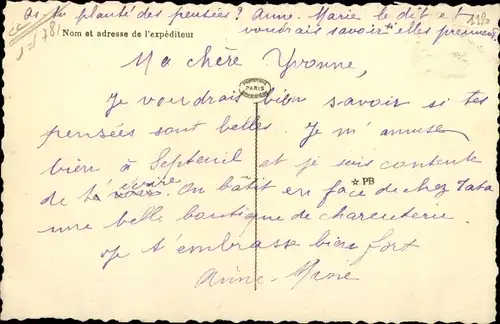 as-tu planté des pensées? Anne-Marie le dit et
voudrais savoir si elles prennent
1180
Nom et adresse de l'expéditeur
Ma chère Yvonne,
PARIS
Je voudrais bien savoir si tes
pensées sont belles. Je m'amuse
bien à Septeuil et je suis contente
de t'écrire. On bâtit en face de chez Tata
☆ PB
une belle boutique de charcuterie.
Je t'embrasse bien fort
Anne-Marie